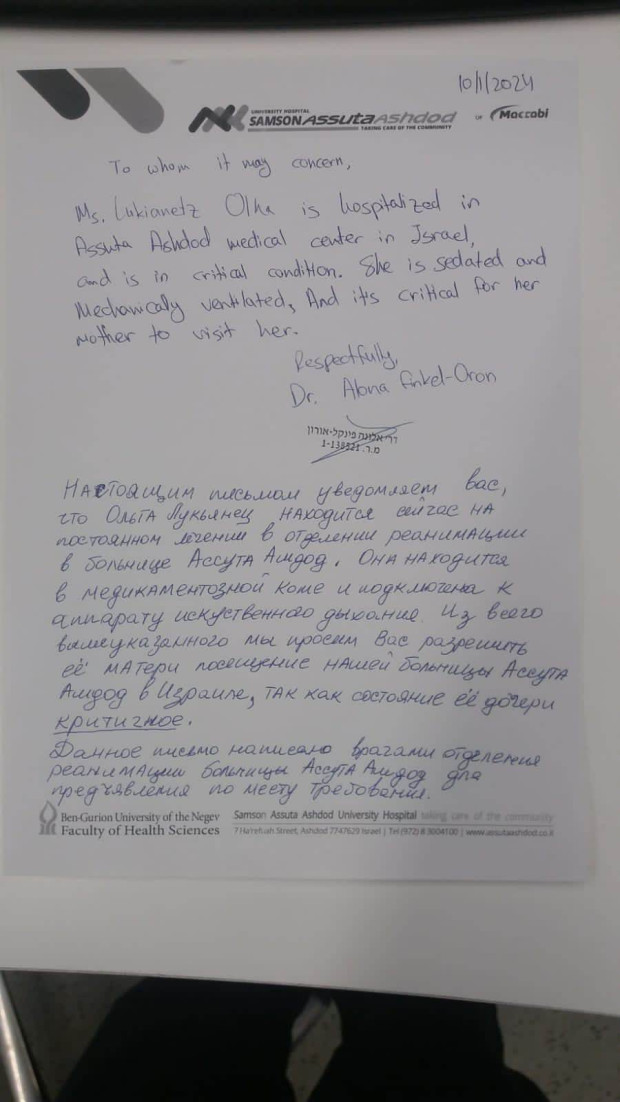 10/1/2024
UNIVERSITY HOSPITAL
SAMSON ASSUTA Ashdod
TAKING CARE OF THE COMMUNITY
Maccabi
To whom it may concern,
Ms. Lukianetz Olha is hospitalized in
Assuta Ashdod medical center in Israel,
and is in critical condition. She is sedated and
Mechanicaly ventilated, And it's critical for her
mother to visit her.
Respectfully,
Dr. Alona Finkel-Oron
דר' אלונה פינקל-אורון
מ.ר. 1-138521
Настоящим письмом уведомляем вас,
что Ольга Лукьянец находится сейчас на
постоянном лечении в отделении реанимации
в больнице Ассута Ашдод. Она находится
в медикаментозной коме и подключена к
аппарату искуственного дыхания. Из всего
вышеуказанного мы просим Вас разрешить
её матери посещение нашей больницы Ассута
Ашдод в Израиле, так как состояние её дочери
критичное.
Данное письмо написано врачами отделения
реанимации больницы Ассута Ашдод для
предъявления по месту требования.
Ben-Gurion University of the Negev
Faculty of Health Sciences
Samson Assuta Ashdod University Hospital taking care of the community
7 Ha'refuah Street, Ashdod 7747629 Israel | Tel (972) 8 3004100 | www.assutaashdod.co.il